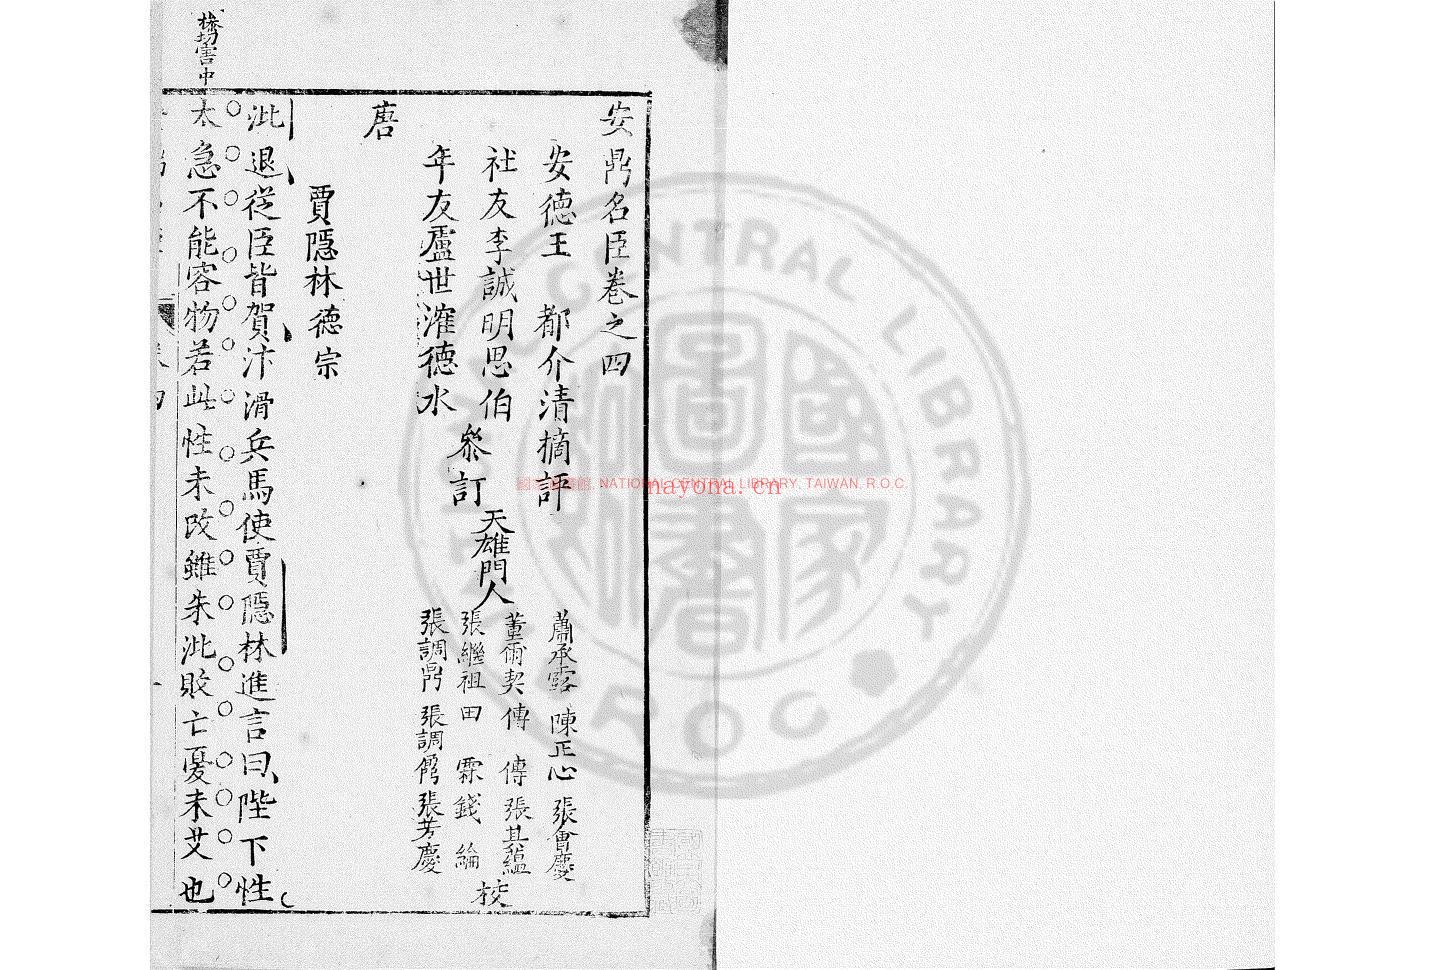 安鼎名臣卷之四
安德王 都介清摘評
社友李誠明思伯
年友盧世㴶德水
叅訂
天雄門人
蕭承露 陳正心 張會慶
董爾契 傳 傳 張其蘊
張繼祖 田 霖 錢 綸
張調鼎 張調鶴 張芳慶
校
唐
賈隱林德宗
泚退從臣皆賀汴滑兵馬使賈隱林進言曰陛下性
太急不能容物若此性未改雖朱泚敗亡憂未艾也
切害中
NATIONAL CENTRAL LIBRARY
R O C
國 圖書館. NATIONAL CENTRAL LIBRARY, TAIWAN, R.O.C.
nayona.cn